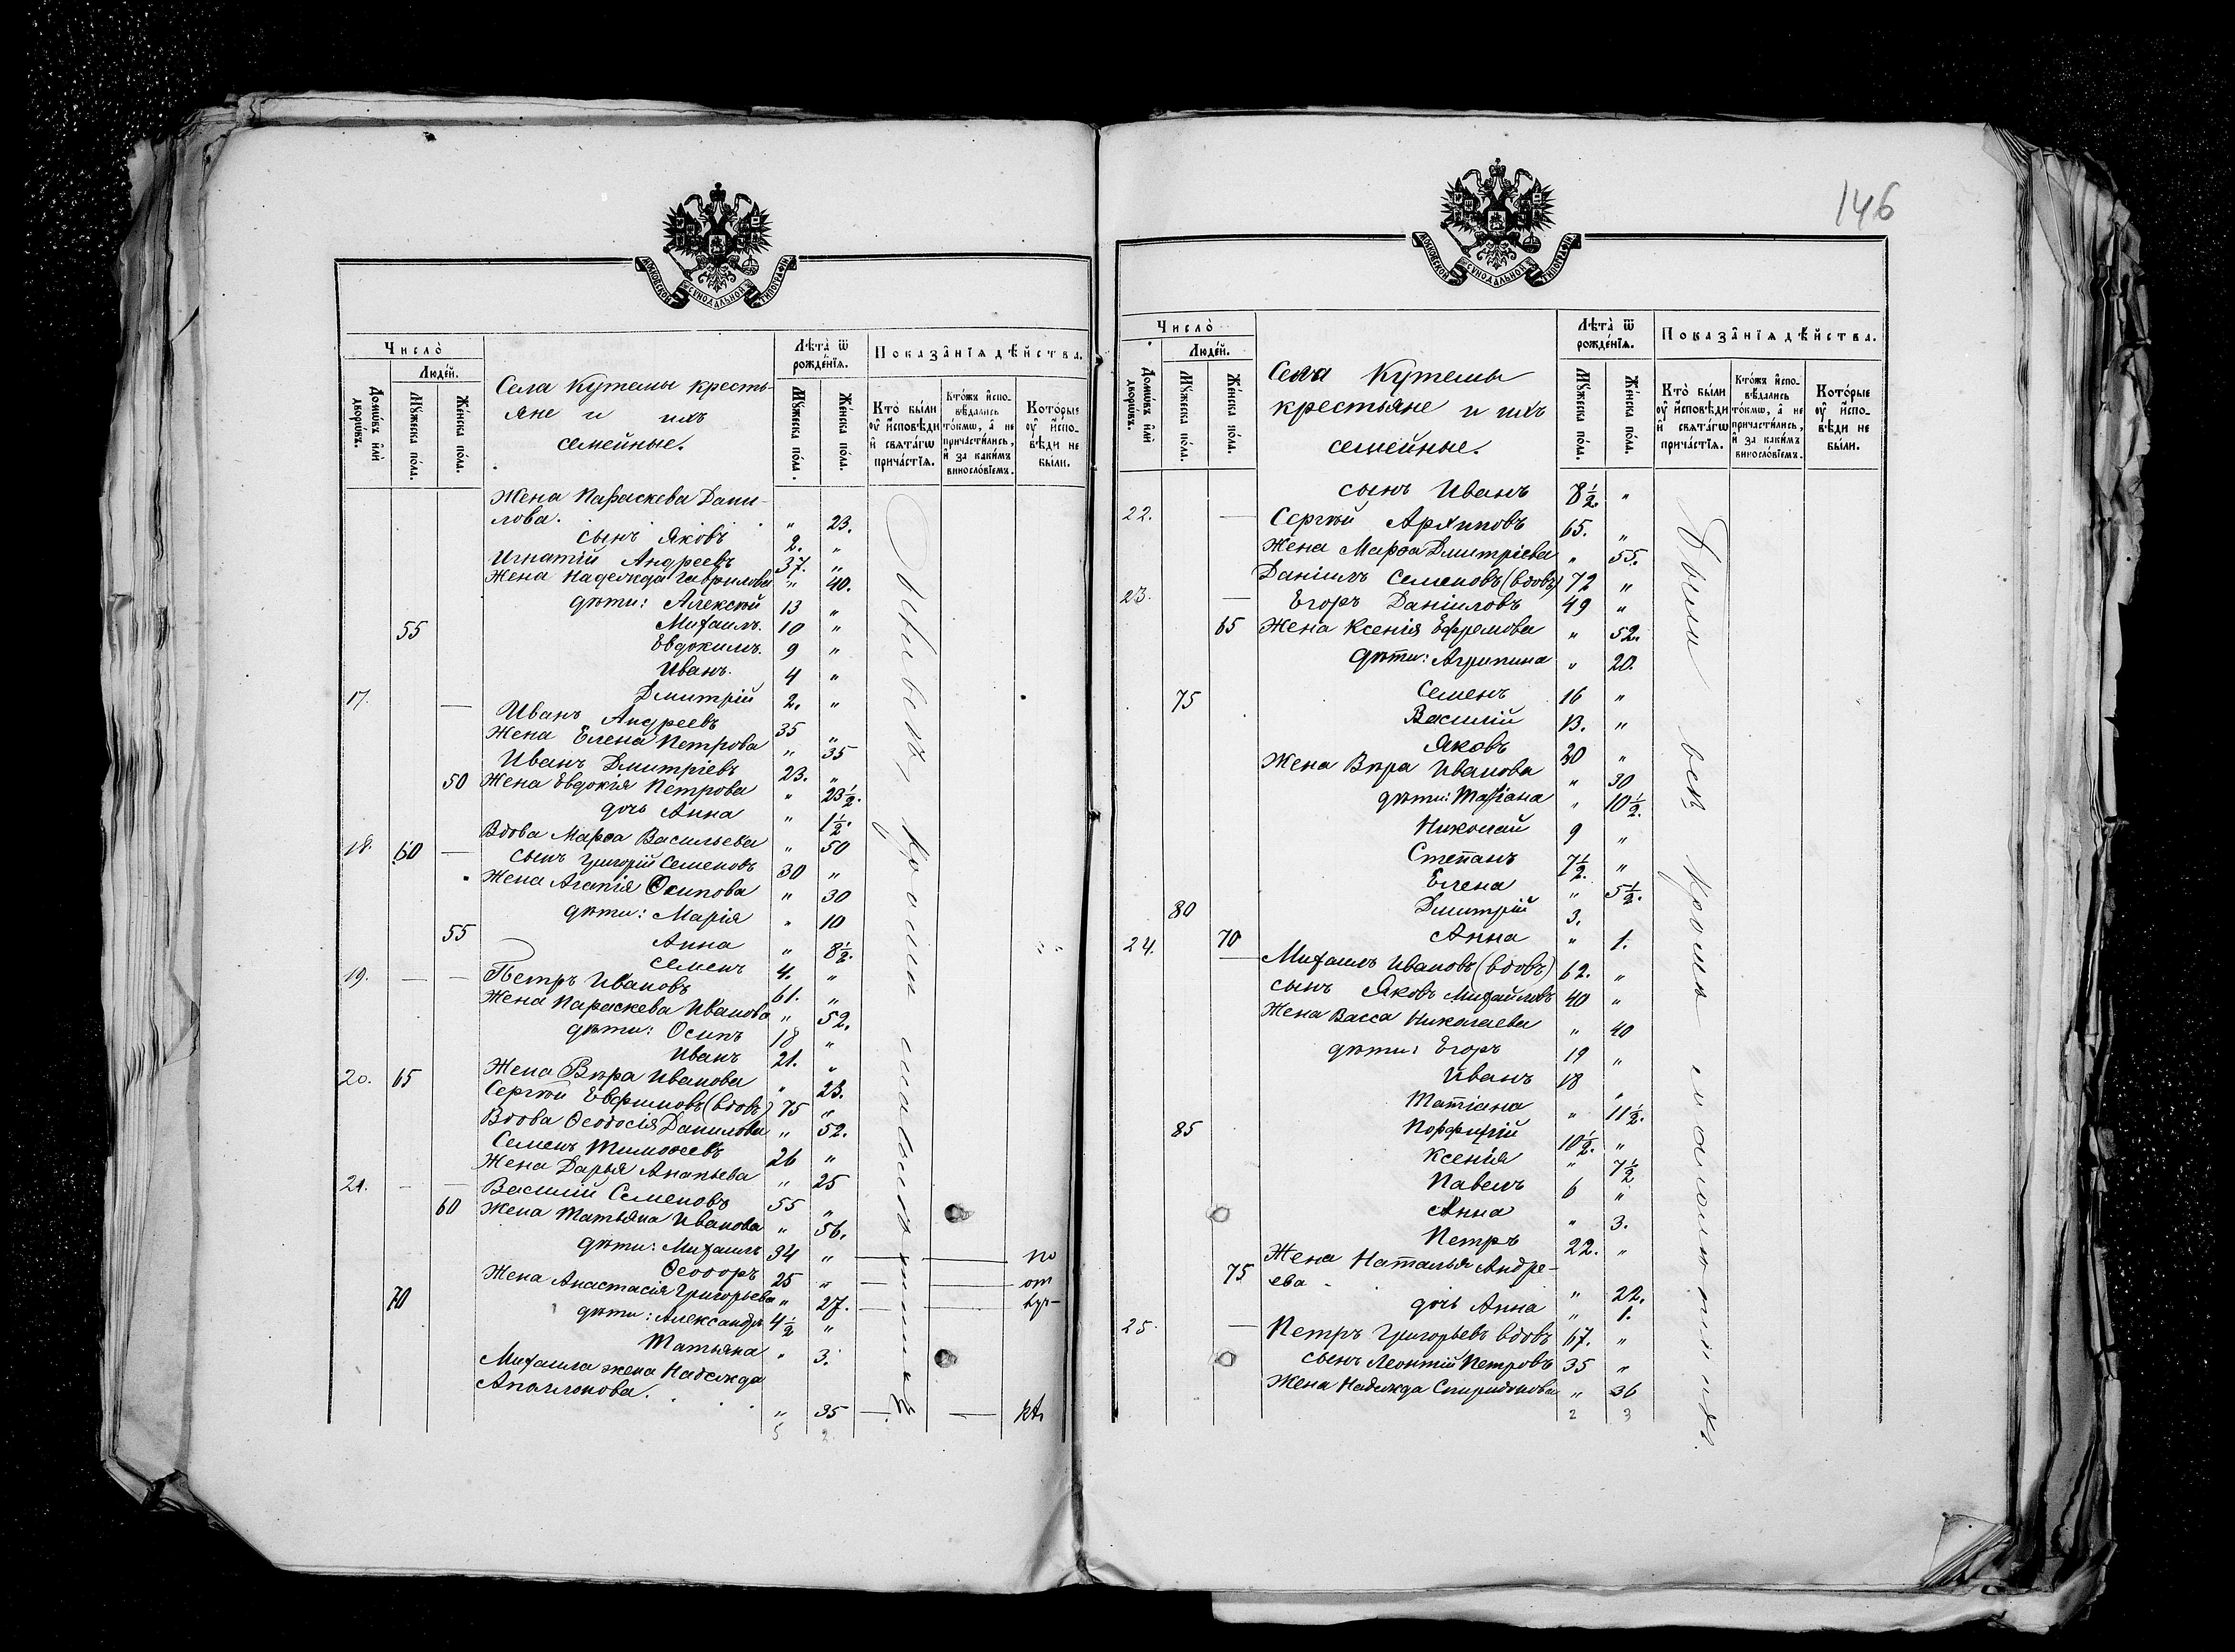 МОСКОВСКОЙ СѴНОДАЛЬНОЙ ТИПОГРАФІИ
Число̀
Людей.
Домѡвъ или дворѡвъ.
Мꙋжеска пола.
Женска пола.
Села Кутемы кресть-
яне и ихъ
семейные.
Лѣта ѿ рожденїѧ.
Мꙋжеска пола.
Женска пола.
Показанїѧ дѣйства.
Кто были оу исповѣди и свѧтагѡ причастїѧ.
Ктожъ исповѣдались токмѡ, а не причастились, и за какимъ винословїемъ.
Которые оу исповѣди не были.
Жена Параскева Дани-
лова. " 23.
сынъ Яковъ 2. "
Игнатій Андреевъ 37. "
Жена Надежда Гаврилова " 40.
дѣти: Алексѣй 13 "
55 Михаилъ. 10 "
Евдокимъ. 9 "
Иванъ. 4 "
Дмитрій 2. "
17. — Иванъ Андреевъ 35 "
Жена Елена Петрова " 35
Иванъ Дмитріевъ 23. "
50 Жена Евдокія Петрова " 23½.
дочь Анна " 1½.
Вдова Марѳа Васильева " 50
18. 60 — сынъ Григорій Семеновъ 30 "
Жена Агапія Осипова " 30
дѣти: Марія " 10
55 Анна " 8½.
Семенъ 4. "
19. — — Петръ Ивановъ 61. "
Жена Параскева Иванова " 52.
дѣти: Осипъ 18 "
Иванъ 21. "
Жена Вѣра Иванова " 23.
20. 65 Сергѣй Евфимовъ (вдовъ) 75 "
Вдова Ѳеодосія Данилова " 52.
Семенъ Тимоѳеевъ 26 "
Жена Дарья Ананьева " 25
21. — — Василій Семеновъ 55 "
60 Жена Татьяна Иванова " 56.
дѣти: Михаилъ 34 " — — по
Ѳеодоръ 25 " — — от
Жена Анастасія Григорьева " 27. — — луч-
70 дѣти: Александръ 4½ "
Татьяна " 3.
Михаила жена Надежда
Аполлонова. " 35 — — кѣ
5 2
кромѣ малолѣтнихъ
146
МОСКОВСКОЙ СѴНОДАЛЬНОЙ ТИПОГРАФІИ
Число̀
Людей.
Домѡвъ или дворѡвъ.
Мꙋжеска пола.
Женска пола.
Села Кутемы
крестьяне и ихъ
семейные.
Лѣта ѿ рожденїѧ.
Мꙋжеска пола.
Женска пола.
Показанїѧ дѣйства.
Кто были оу исповѣди и свѧтагѡ причастїѧ.
Ктожъ исповѣдались токмѡ, а не причастились, и за какимъ винословїемъ.
Которые оу исповѣди не были.
сынъ Иванъ 8½. "
22. — Сергѣй Архиповъ 65. "
Жена Марѳа Дмитріева " 55.
Даніилъ Семеновъ (вдовъ) 72 "
23. — Егоръ Даніиловъ 49 "
65 Жена Ксенія Ефремова " 52.
дѣти: Агрипина " 20.
75 Семенъ 16 "
Василій 13. "
Яковъ 30 "
Жена Вѣра Иванова " 30
дѣти: Татіана " 10½.
Николай 9 "
Степанъ 7½. "
Елена " 5½.
80 Дмитрій 3. "
70 Анна " 1.
24. — Михаилъ Ивановъ (вдовъ) 62. "
сынъ Яковъ Михайловъ 40 "
Жена Васса Николаева " 40
дѣти: Егоръ 19 "
Иванъ 18 "
Татіана " 11½.
85 Порфирій 10½. "
Ксенія " 7½
Павелъ 6 "
Анна " 3.
Петръ 22. "
Жена Наталья Андре-
75 ева " 22.
дочь Анна " 1.
25. — Петръ Григорьевъ вдовъ 67. "
сынъ Леонтій Петровъ 35 "
Жена Надежда Спиридонова " 36
2 3
Были всѣ кромѣ малолѣтнихъ.